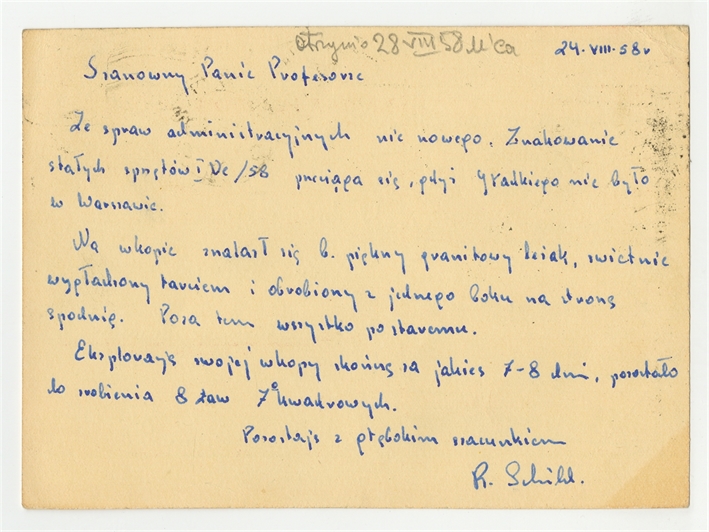 28 VIII 58 24.VIII.58 r
Szanowny Panie Profesorze
Ze spraw administracyjnych nic nowego. Znakowanie
stałych sprzętów I De/58 przeciąga się, gdyż Gładkiego nie było
w Warszawie.
Na wkopie znalazł się b. piękny granitowy leżak, świetnie
wygładzony tarciem i obrobiony z jednego boku na stronę
spodnią. Poza tem wszystko po staremu.
Eksplorację swojej wkopy skończę za jakieś 7-8 dni, pozostało
do zrobienia 8 kwadrowych.
Pozostaję z głębokim szacunkiem
R. Schild.